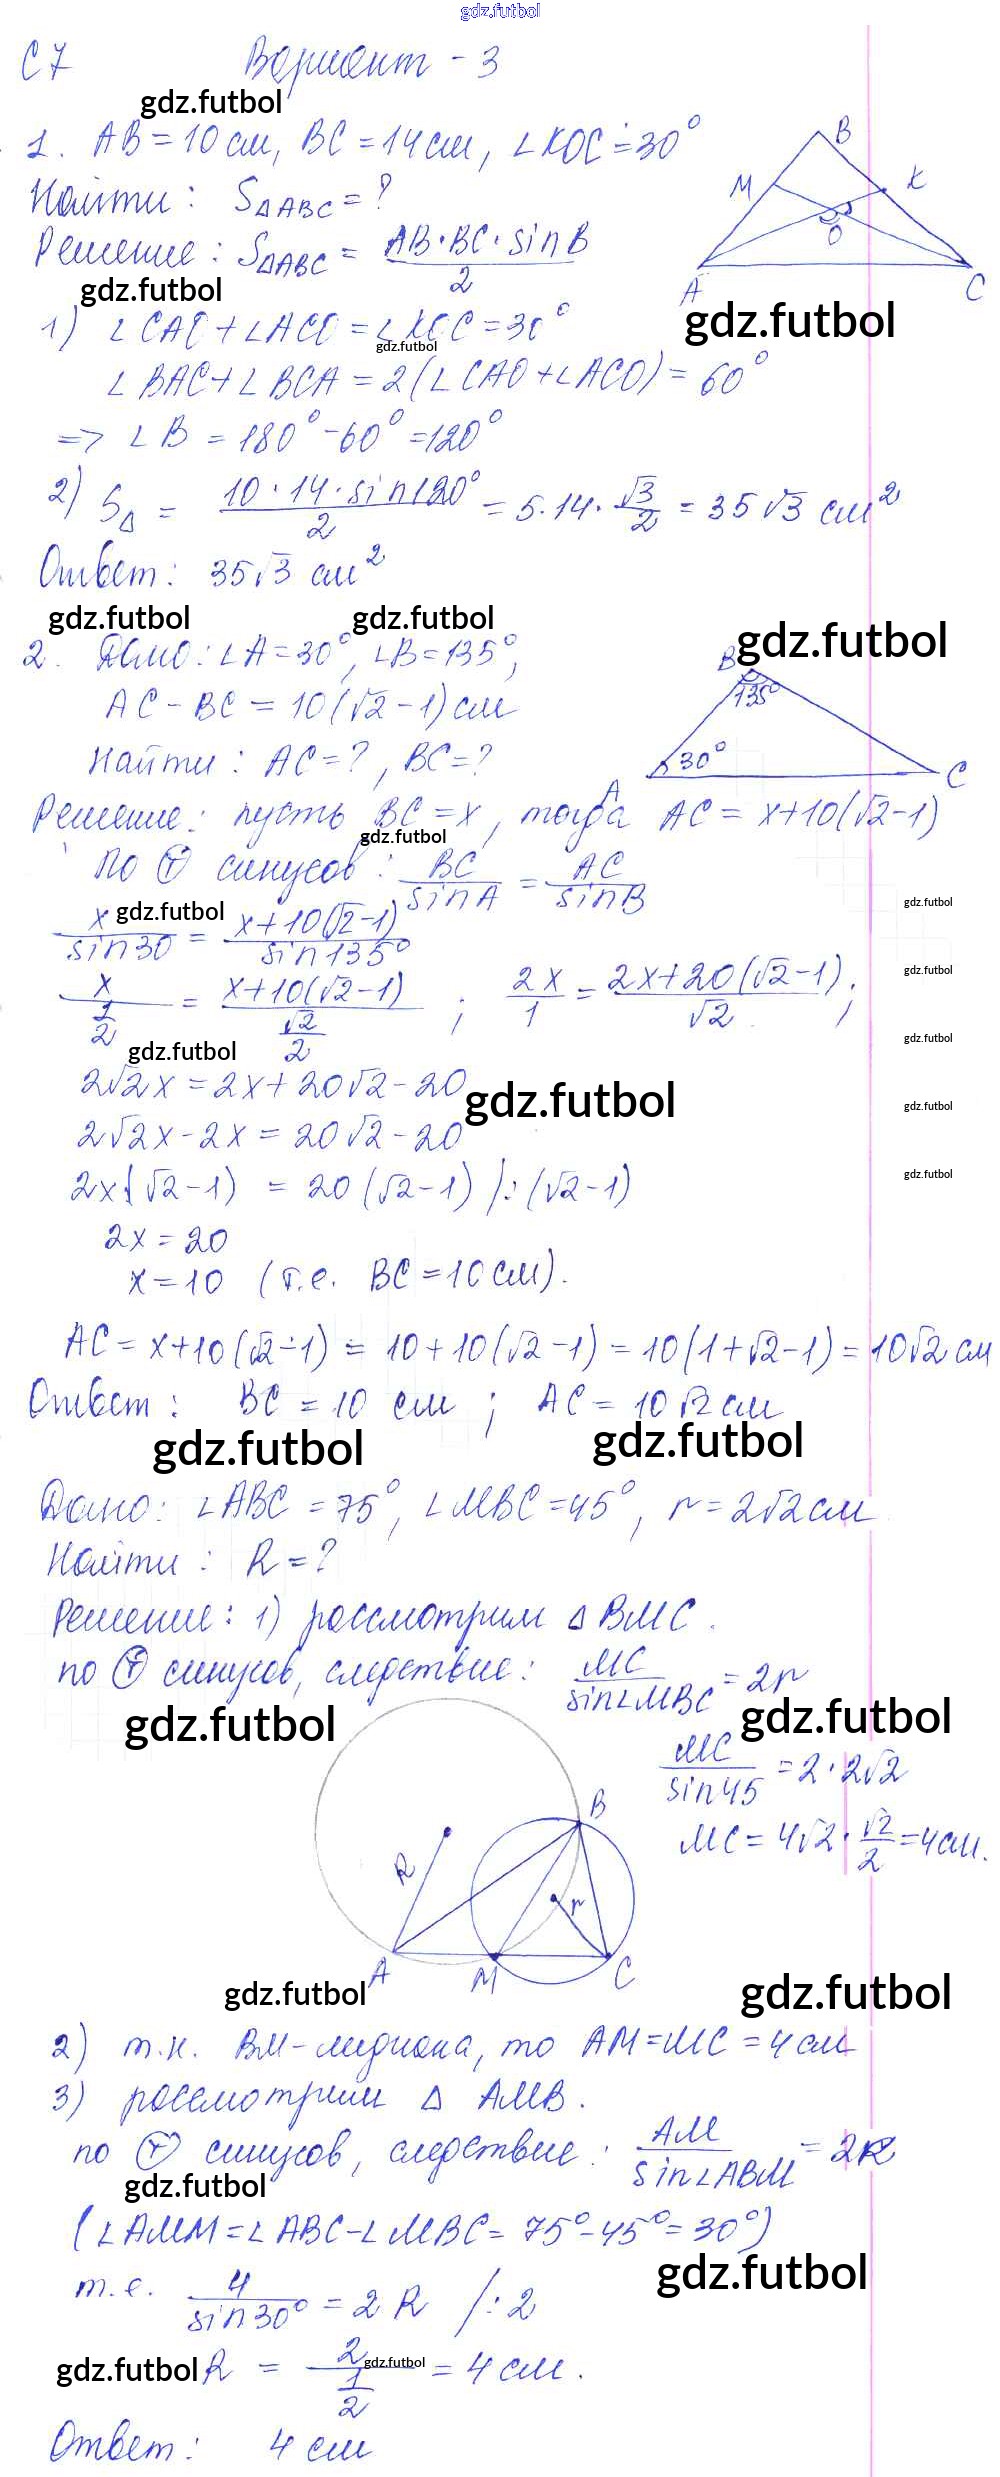 gdz.futbol
С7 Вариант - 3
gdz.futbol
1. AB = 10 см, BC = 14 см, ∠KOC = 30°
B
M
K
O
A
C
Найти: S△ABC = ?
Решение: S△ABC = AB·BC·sin B / 2
gdz.futbol
gdz.futbol
1) ∠CAO + ∠ACO = ∠KOC = 30°
gdz.futbol
∠BAC + ∠BCA = 2(∠CAO + ∠ACO) = 60°
=> ∠B = 180° - 60° = 120°
2) S△ = 10·14·sin 120° / 2 = 5·14·√3/2 = 35√3 см²
Ответ: 35√3 см²
gdz.futbol gdz.futbol gdz.futbol
2. Дано: ∠A = 30°, ∠B = 135°,
B
135°
30°
A
C
AC - BC = 10(√2 - 1) см
Найти: AC = ?, BC = ?
Решение: пусть BC = x, тогда AC = x + 10(√2 - 1)
gdz.futbol
по Ⓣ синусов: BC / sin A = AC / sin B
gdz.futbol
gdz.futbol
x / sin 30 = x + 10(√2 - 1) / sin 135°
gdz.futbol
x / 1/2 = x + 10(√2 - 1) / √2/2 ; 2x / 1 = 2x + 20(√2 - 1) / √2 ;
gdz.futbol
gdz.futbol
2√2x = 2x + 20√2 - 20
gdz.futbol
gdz.futbol
2√2x - 2x = 20√2 - 20
2x(√2 - 1) = 20(√2 - 1) /: (√2 - 1)
gdz.futbol
2x = 20
x = 10 (т.е. BC = 10 см).
AC = x + 10(√2 - 1) = 10 + 10(√2 - 1) = 10(1 + √2 - 1) = 10√2 см
Ответ: BC = 10 см ; AC = 10√2 см
gdz.futbol gdz.futbol
Дано: ∠ABC = 75°, ∠MBC = 45°, r = 2√2 см
Найти: R = ?
Решение: 1) рассмотрим △BMC.
по Ⓣ синусов, следствие: MC / sin∠MBC = 2r
gdz.futbol gdz.futbol
MC / sin 45 = 2·2√2
MC = 4√2·√2/2 = 4 см.
B
R
r
A
M
C
gdz.futbol gdz.futbol
2) т.к. BM - медиана, то AM = MC = 4 см
3) рассмотрим △ AMB.
по Ⓣ синусов, следствие: AM / sin∠ABM = 2R
gdz.futbol
(∠AMM = ∠ABC - ∠MBC = 75° - 45° = 30°)
gdz.futbol
т.е. 4 / sin 30° = 2R /: 2
gdz.futbol R = 2 / 1/2 = 4 см.
gdz.futbol
Ответ: 4 см